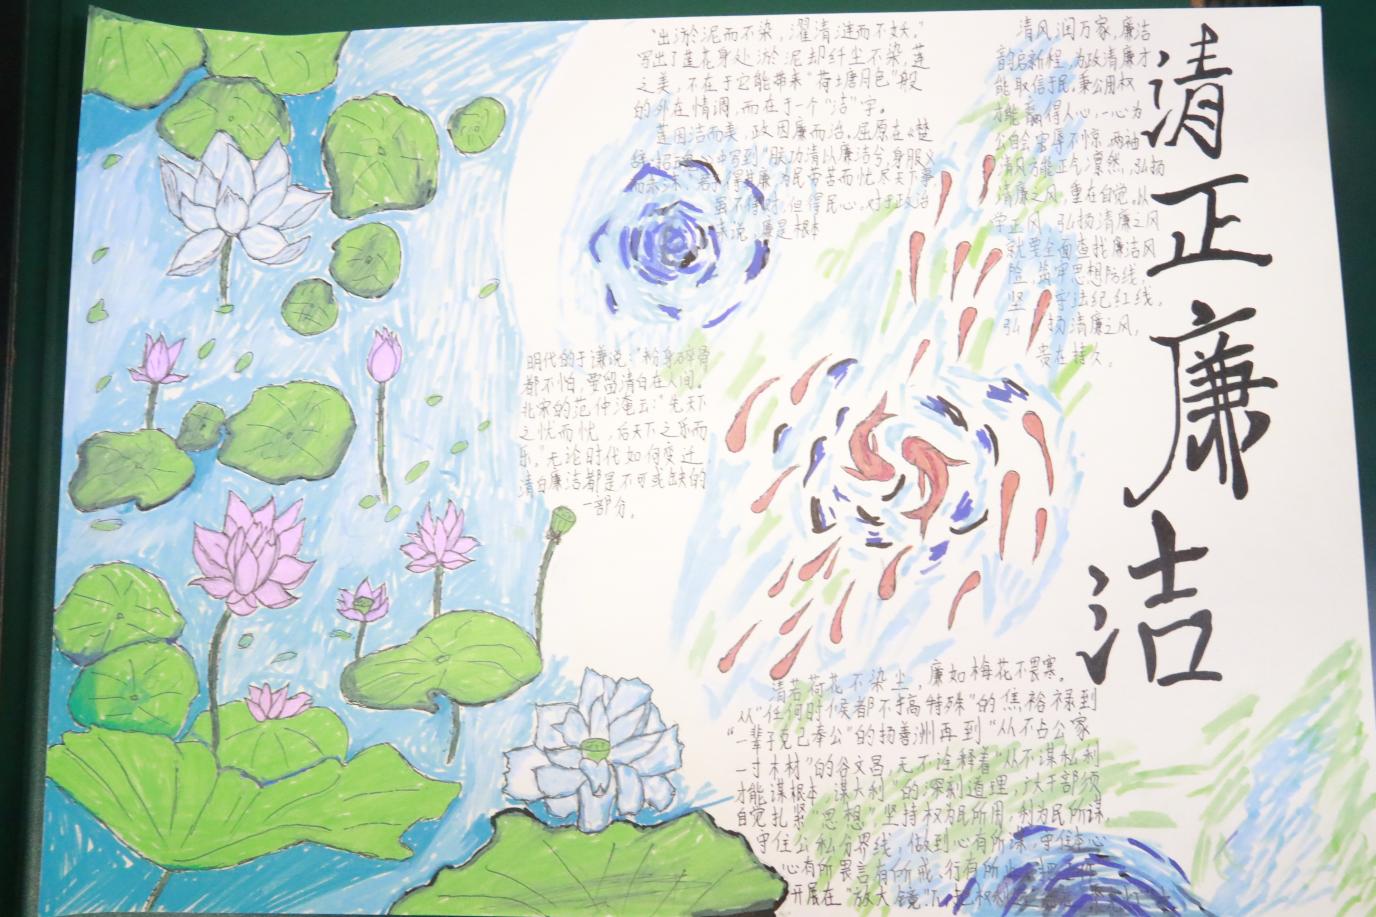 清正廉洁
"出淤泥而不染，濯清涟而不妖。"
写出了莲花身处淤泥却纤尘不染，莲
之美，不在于它能带来"荷塘月色"般
的外在情调，而在于一个"洁"字。
莲因洁而美，政因廉而治。屈原在《楚
辞·招魂》中写到"朕幼清以廉洁兮，身服义
而未沫"。
虽不得时，但得民心。对于政治
来说，廉是根本
清风润万家，廉洁
韵启新程，为政清廉才
能取信于民。秉公用权
才能赢得人心，一心为
公自会宠辱不惊，两袖
清风方能正气凛然，弘扬
清廉之风，重在自觉。从
学正风，弘扬清廉之风
就要全面查找廉洁风
险，筑牢思想防线，
坚守法纪红线，
弘扬清廉之风，
贵在持久。
明代的于谦说："粉身碎骨
都不怕，要留清白在人间。
北宋的范仲淹云："先天下
之忧而忧，后天下之乐而
乐。"无论时代如何变迁
清白廉洁都是不可或缺的
一部分。
清若荷花不染尘，廉如梅花不畏寒。
从"任何时候都不搞特殊"的焦裕禄到
"一辈子克己奉公"的杨善洲再到"从不占公家
一寸木材"的谷文昌，无不诠释着"从不谋私利
才能谋根本、谋大利"的深刻道理，
自觉扎紧"思想"，坚持权为民所用，利为民所谋，
守住公私分界线，做到心有所
心有所畏言有所戒、行有所止
开展在"放大镜"下